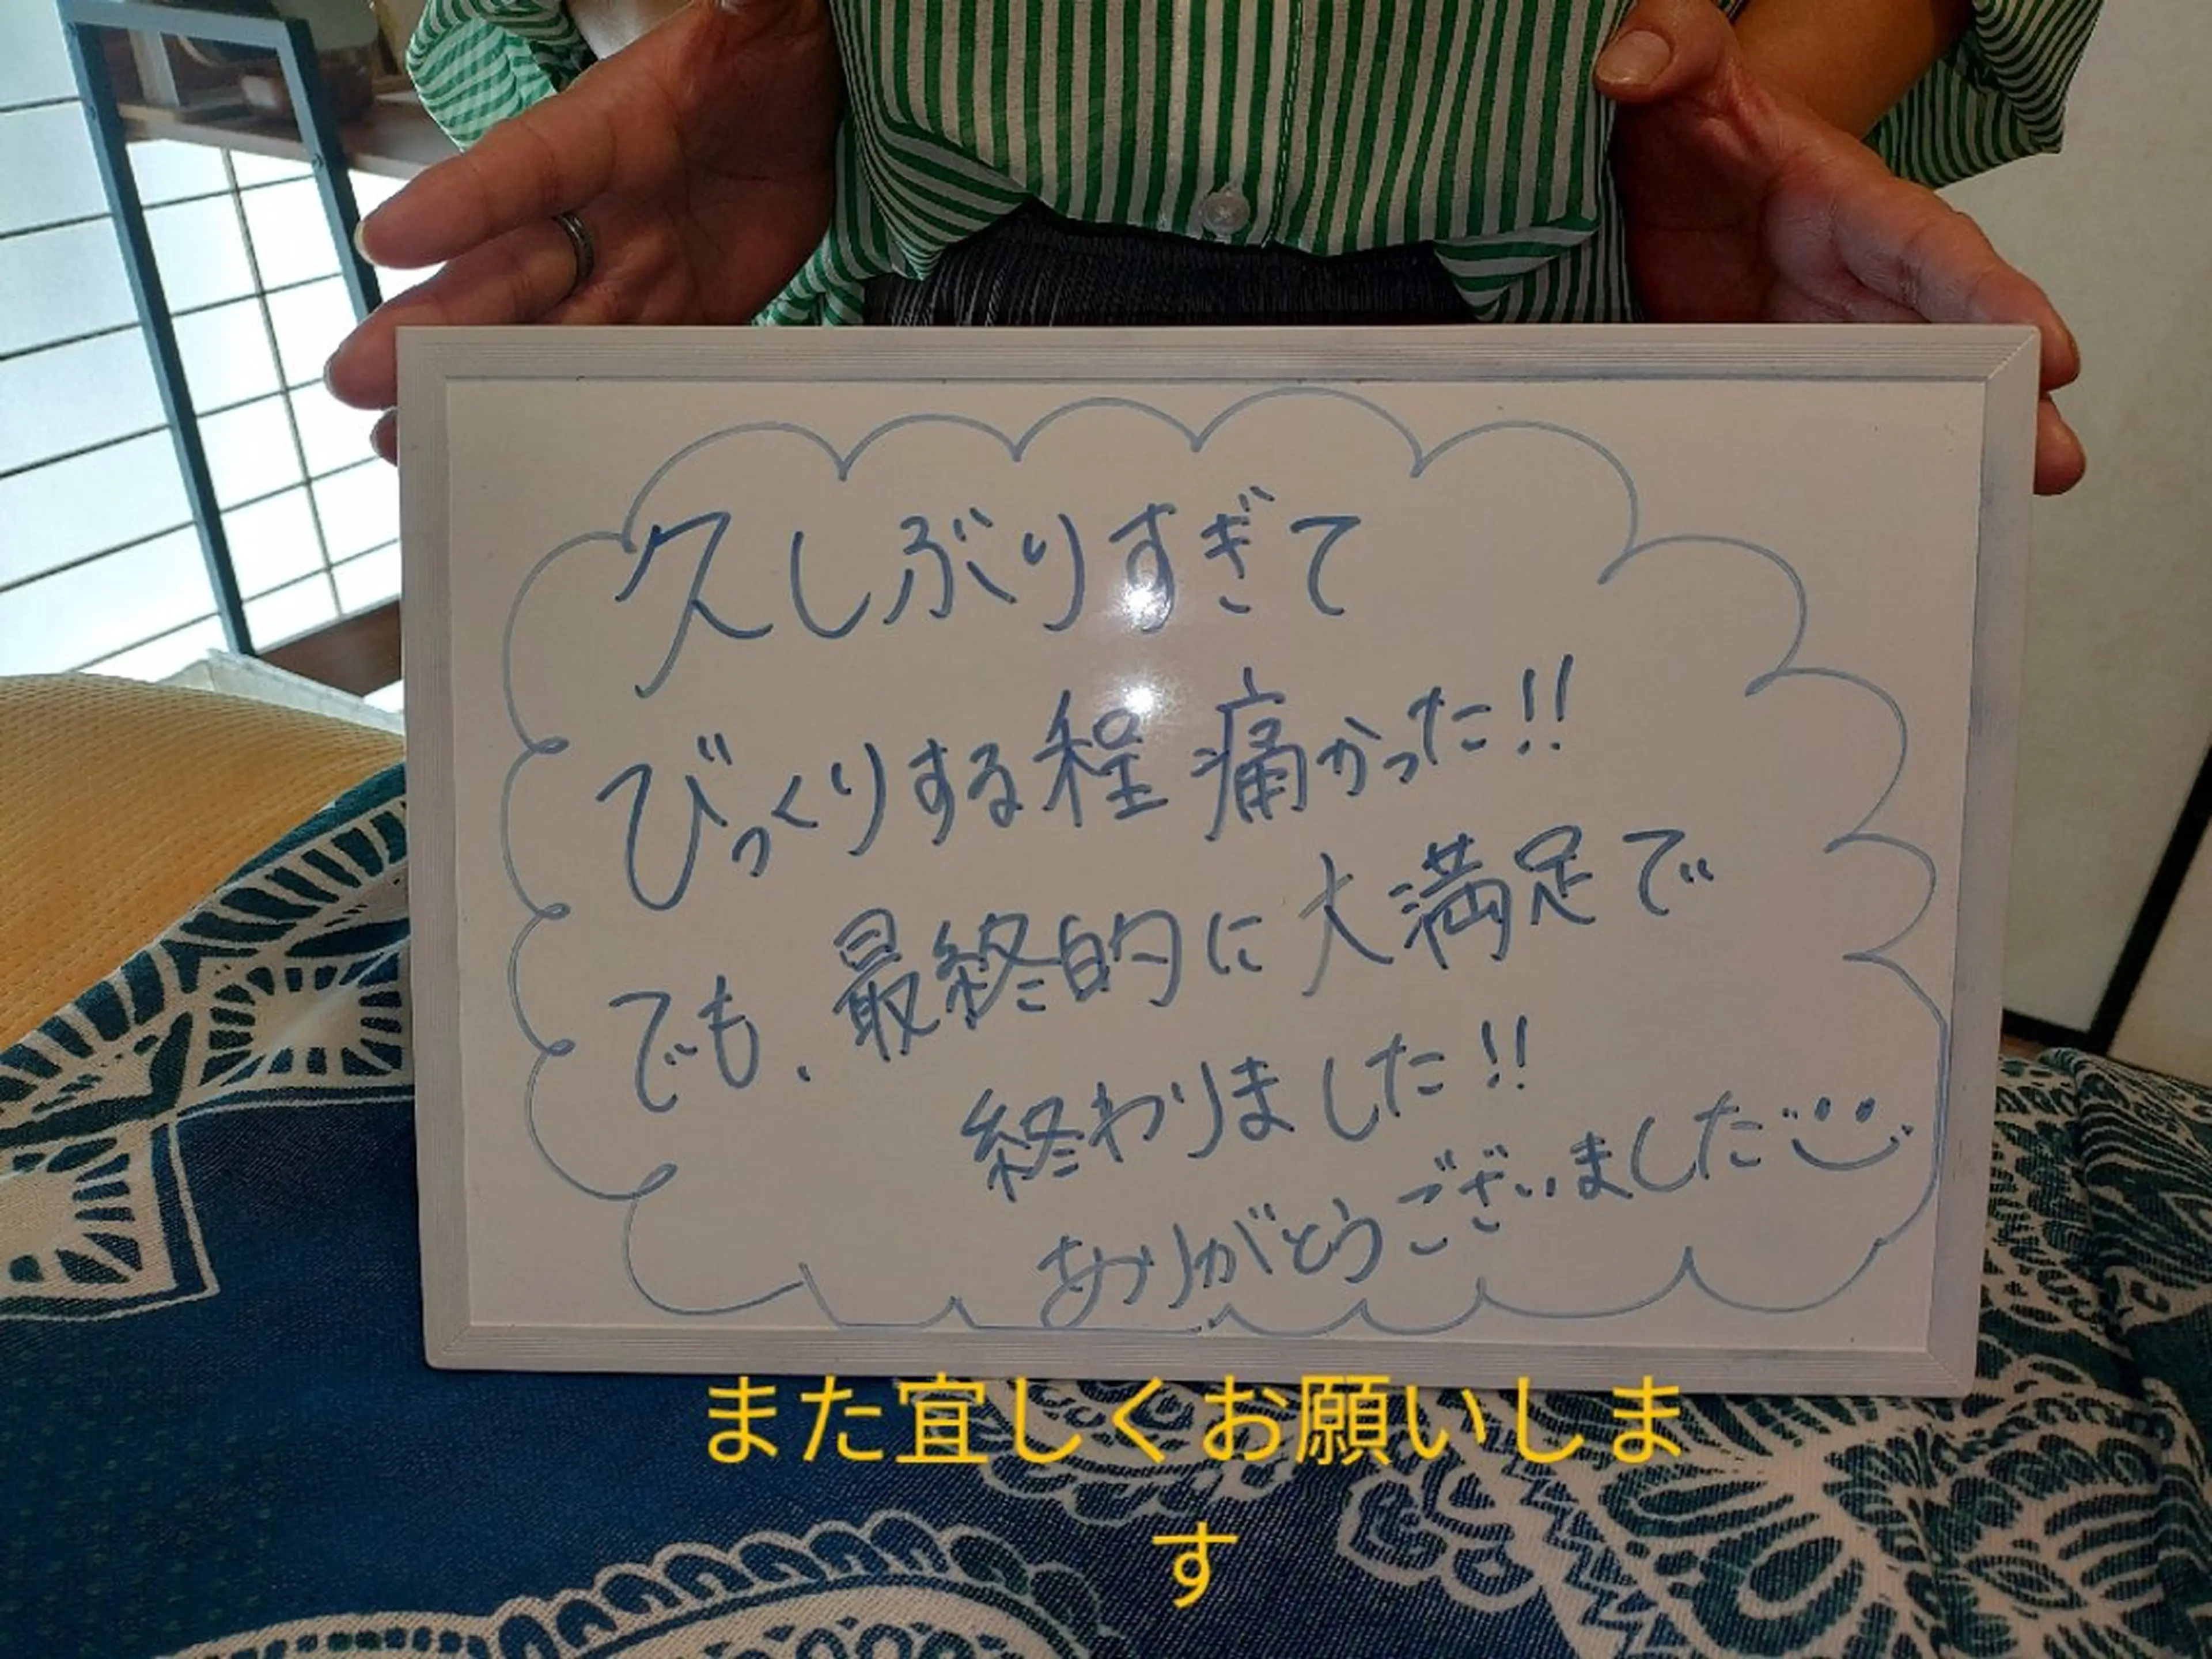 久しぶりすぎて
びっくりする程痛かった!!
でも、最終的に大満足で
終わりました!!
ありがとうございました
また宜しくお願いしま
す